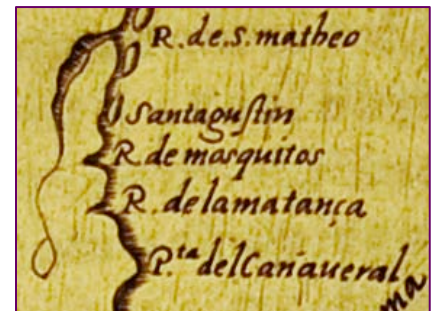 R. de. S. matheo
Santagustin
R de mosquitos
R. de lamatança
P.ta del Cañaueral
ma